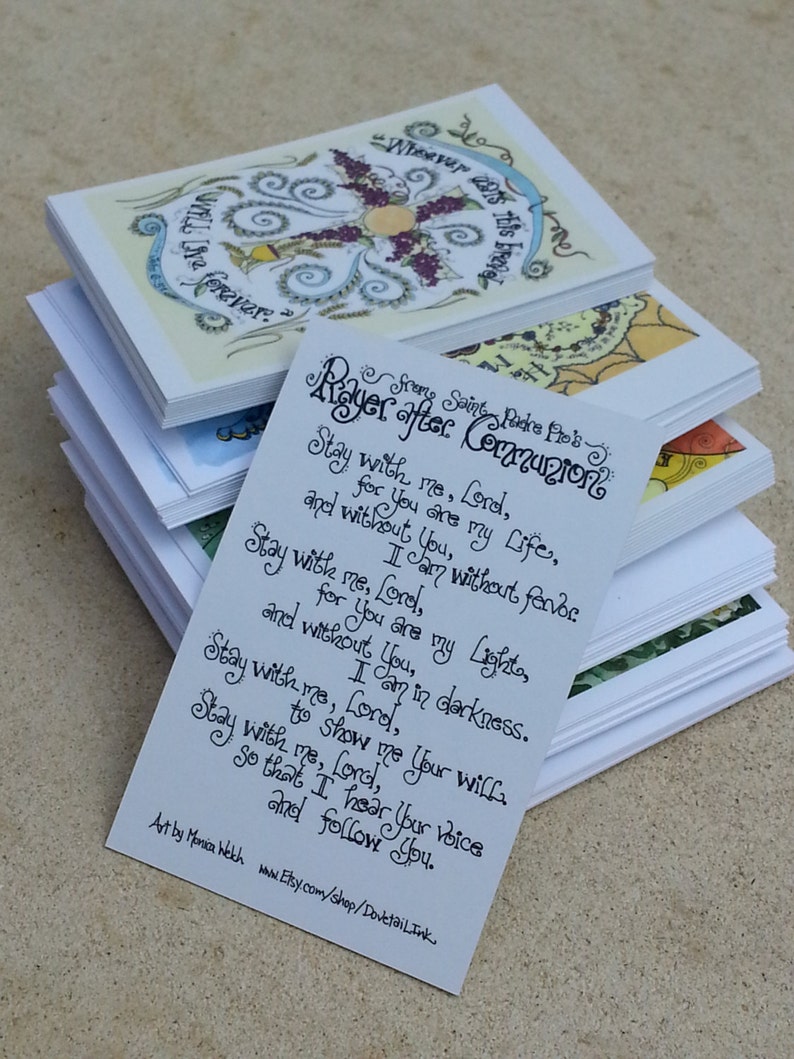 "Whoever eats this bread
will live forever."
from Saint Padre Pio's
Prayer after Communion
Stay with me, Lord,
for You are my Life,
and without You,
I am without fervor.
Stay with me, Lord,
for You are my Light,
and without You,
I am in darkness.
Stay with me, Lord,
to show me Your will.
Stay with me, Lord,
so that I hear Your voice
and follow You.
Art by Monica Welch
www.Etsy.com/shop/DovetailInk